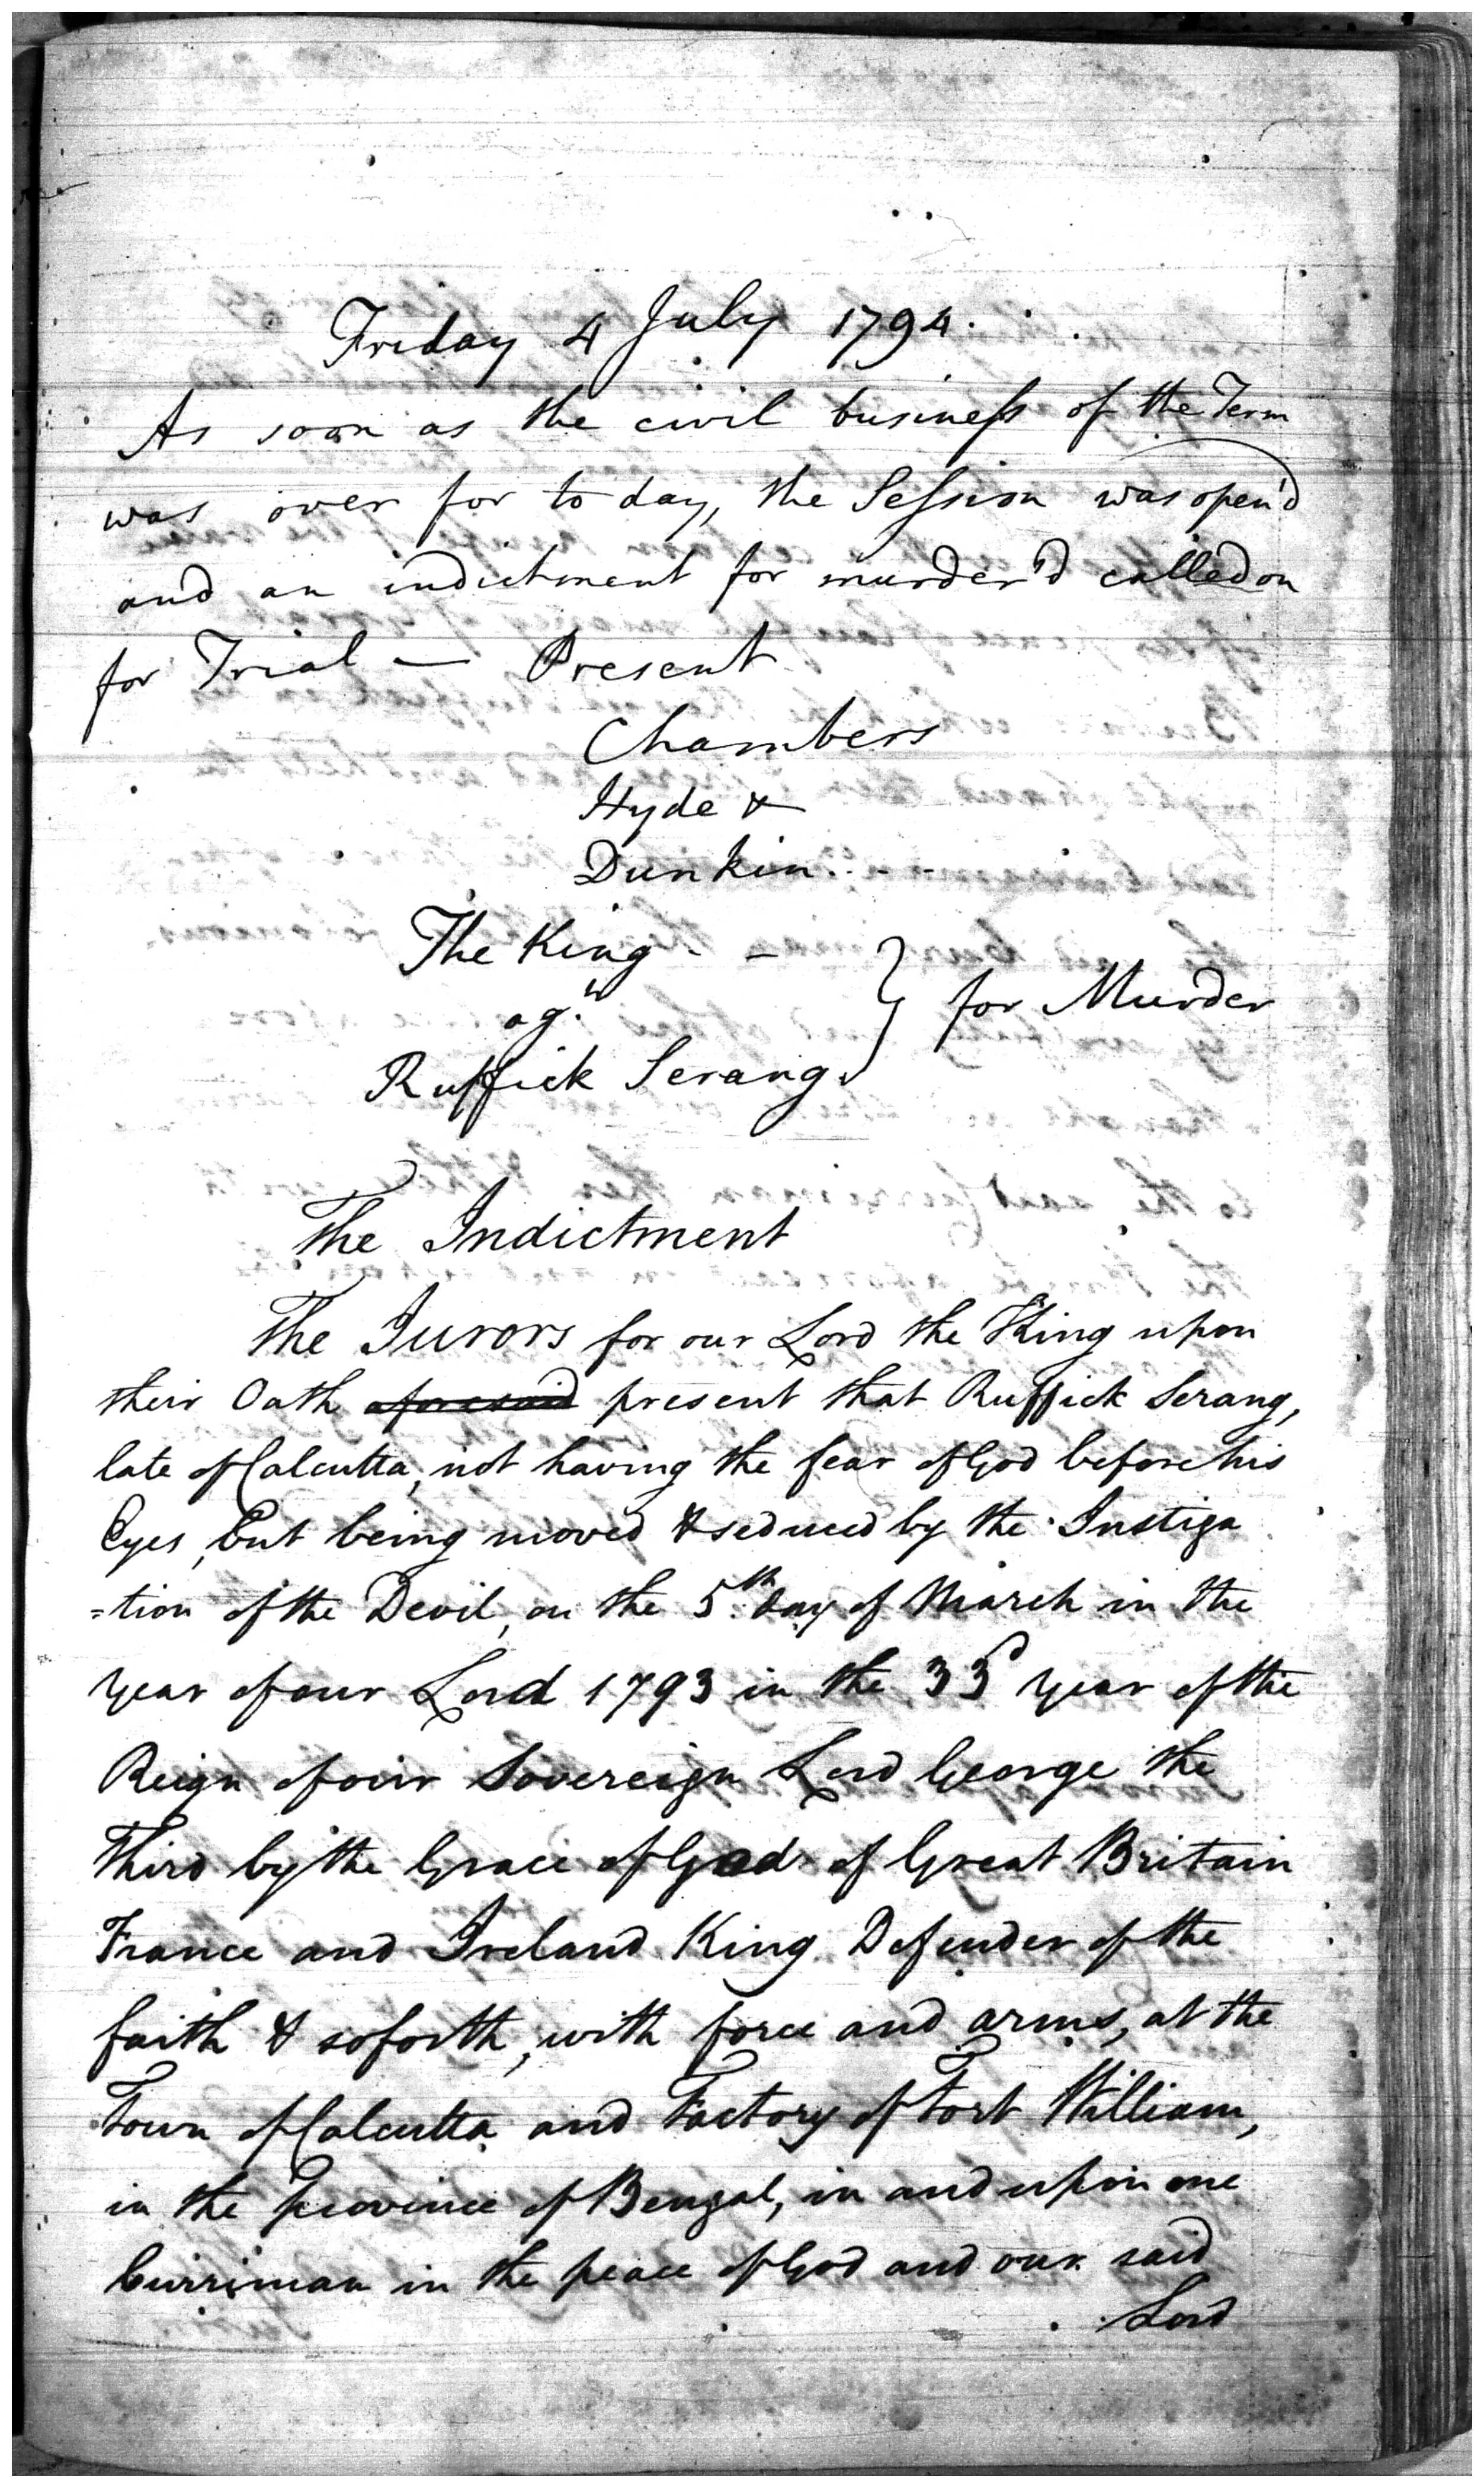 Friday 4 July 1794.
As soon as the civil business of the Term
was over for to day, the Session was open'd
and an indictment for murder'd called on
for Trial — Present
Chambers
Hyde &
Dunkin. - -
The King - -
ag.st } for Murder
Ruffick Serang
The Indictment
The Jurors for our Lord the King upon
their Oath aforesaid present that Ruffick Serang,
late of Calcutta, not having the fear of God before his
Eyes, but being moved & seduced by the Instiga
=tion of the Devil, on the 5.th day of March in the
year of our Lord 1793 in the 33d year of the
Reign of our Sovereign Lord George the
Third by the Grace of God of Great Britain
France and Ireland King Defender of the
faith & soforth, with force and arms, at the
Town of Calcutta and Factory of Fort William,
in the Province of Bengal, in and upon one
Curriman in the peace of God and our said
Lord